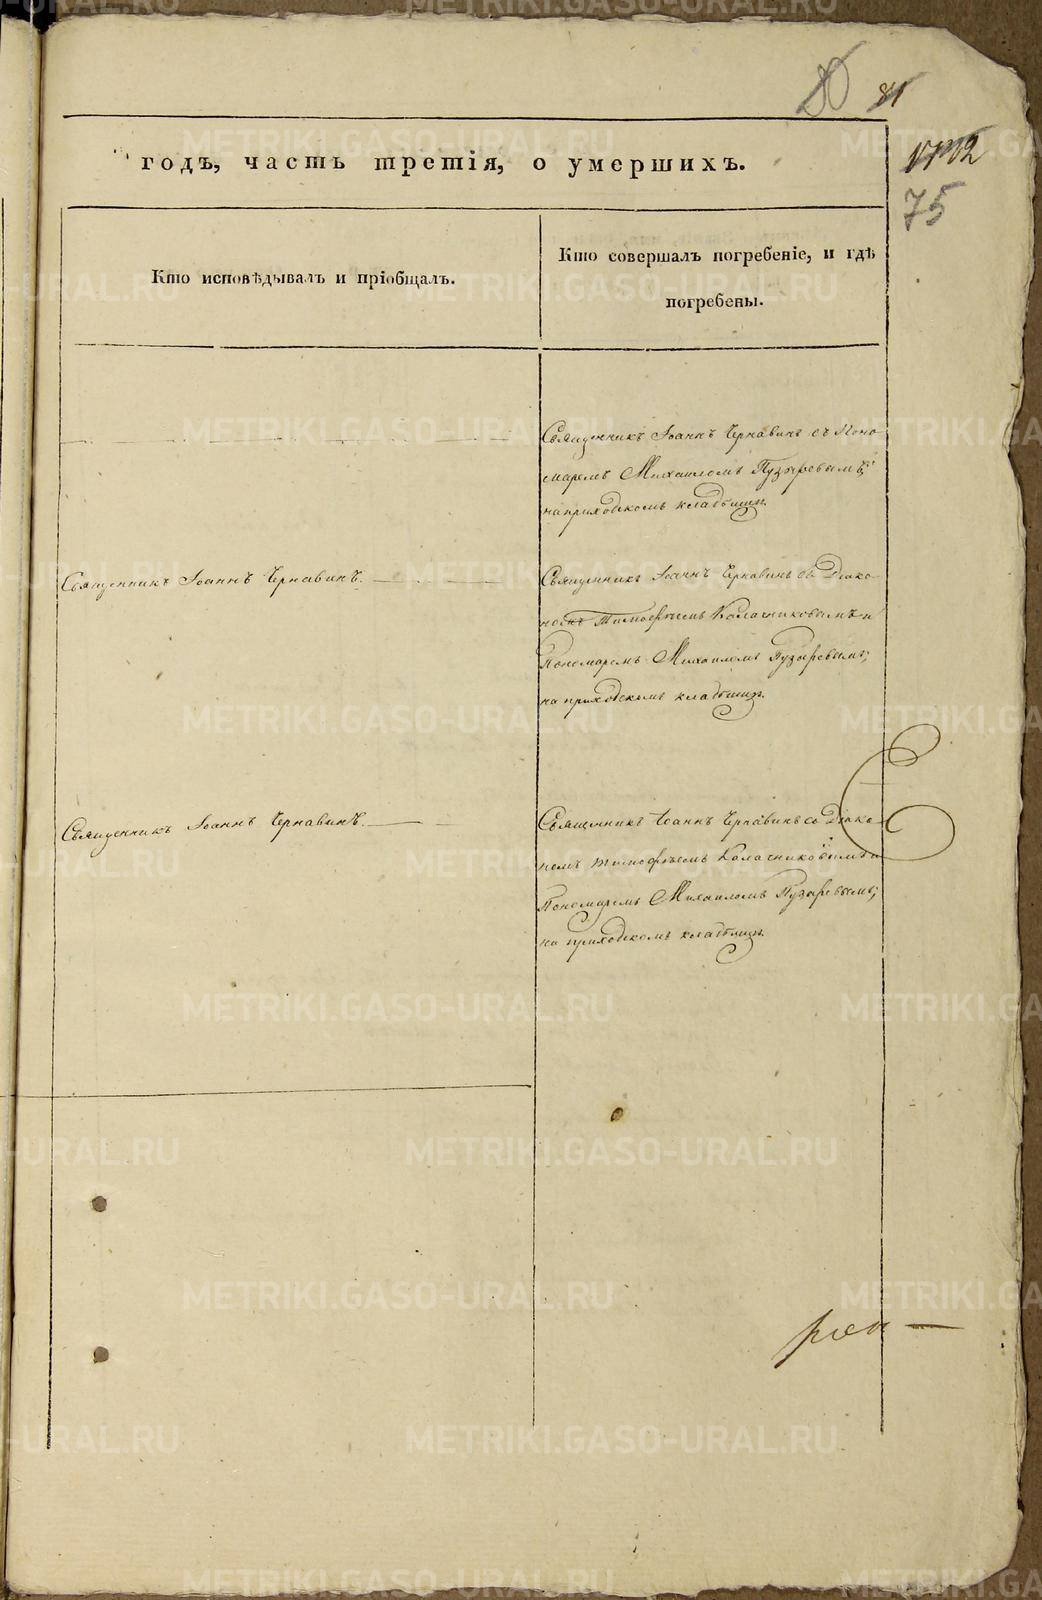 80 81
годъ, часть третія, о умершихъ.
75
Кто исповѣдывалъ и пріобщалъ.
Кто совершалъ погребеніе, и гдѣ
погребены.
Священникъ Іоаннъ Чернавинъ съ Поно-
маремъ Михаиломъ Пузыревымъ;
на приходскомъ кладбищѣ.
Священникъ Іоаннъ Чернавинъ.
Священникъ Іоаннъ Чернавинъ съ Діако-
номъ Тимофѣемъ Калачниковымъ и
Пономаремъ Михаиломъ Пузыревымъ;
на приходскомъ кладбищѣ.
Священникъ Іоаннъ Чернавинъ.
Священникъ Іоаннъ Чернавинъ со Діако-
номъ Тимофѣемъ Калачниковымъ и
Пономаремъ Михаиломъ Пузыревымъ;
на приходскомъ кладбищѣ.
METRIKI.GASO-URAL.RU